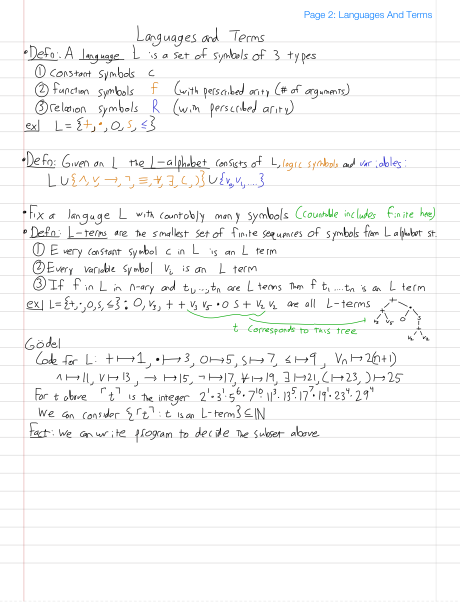 Page 2: Languages And Terms
Languages and Terms
• Defn: A language L is a set of symbols of 3 types
① constant symbols c
② function symbols f (with perscribed arity (# of arguments)
③ relation symbols R (with perscribed arity)
ex| L = {+, •, 0, S, ≤}
• Defn: Given an L the L-alphabet consists of L, logic symbols and variables:
L ∪ {∧, ∨, →, ¬, ≡, ∀, ∃, (, )} ∪ {v₀, v₁, ...}
• Fix a language L with countably many symbols (countable includes finite here)
• Defn: L-terms are the smallest set of finite sequences of symbols from L alphabet st.
① Every constant symbol c in L is an L term
② Every variable symbol vᵢ is an L term
③ If f in L in n-ary and t₁, ..., tₙ are L terms then f t₁, ... tₙ is an L term
ex| L = {+, •, 0, S, ≤} : 0, v₃, + + v₃ v₅ • 0 S + v₂ v₂ are all L-terms
t corresponds to this tree
Gödel
Code for L: + ↦ 1, • ↦ 3, 0 ↦ 5, S ↦ 7, ≤ ↦ 9, Vₙ ↦ 2(n+1)
∧ ↦ 11, ∨ ↦ 13, → ↦ 15, ¬ ↦ 17, ∀ ↦ 19, ∃ ↦ 21, ( ↦ 23, ) ↦ 25
For t above ⌜t⌝ is the integer 2¹ • 3¹ • 5⁶ • 7¹⁰ 11³ • 13⁵ • 17⁷ • 19¹ • 23⁴ • 29⁴
We can consider {⌜t⌝ : t is an L-term} ⊆ ℕ
Fact: We can write program to decide the subset above